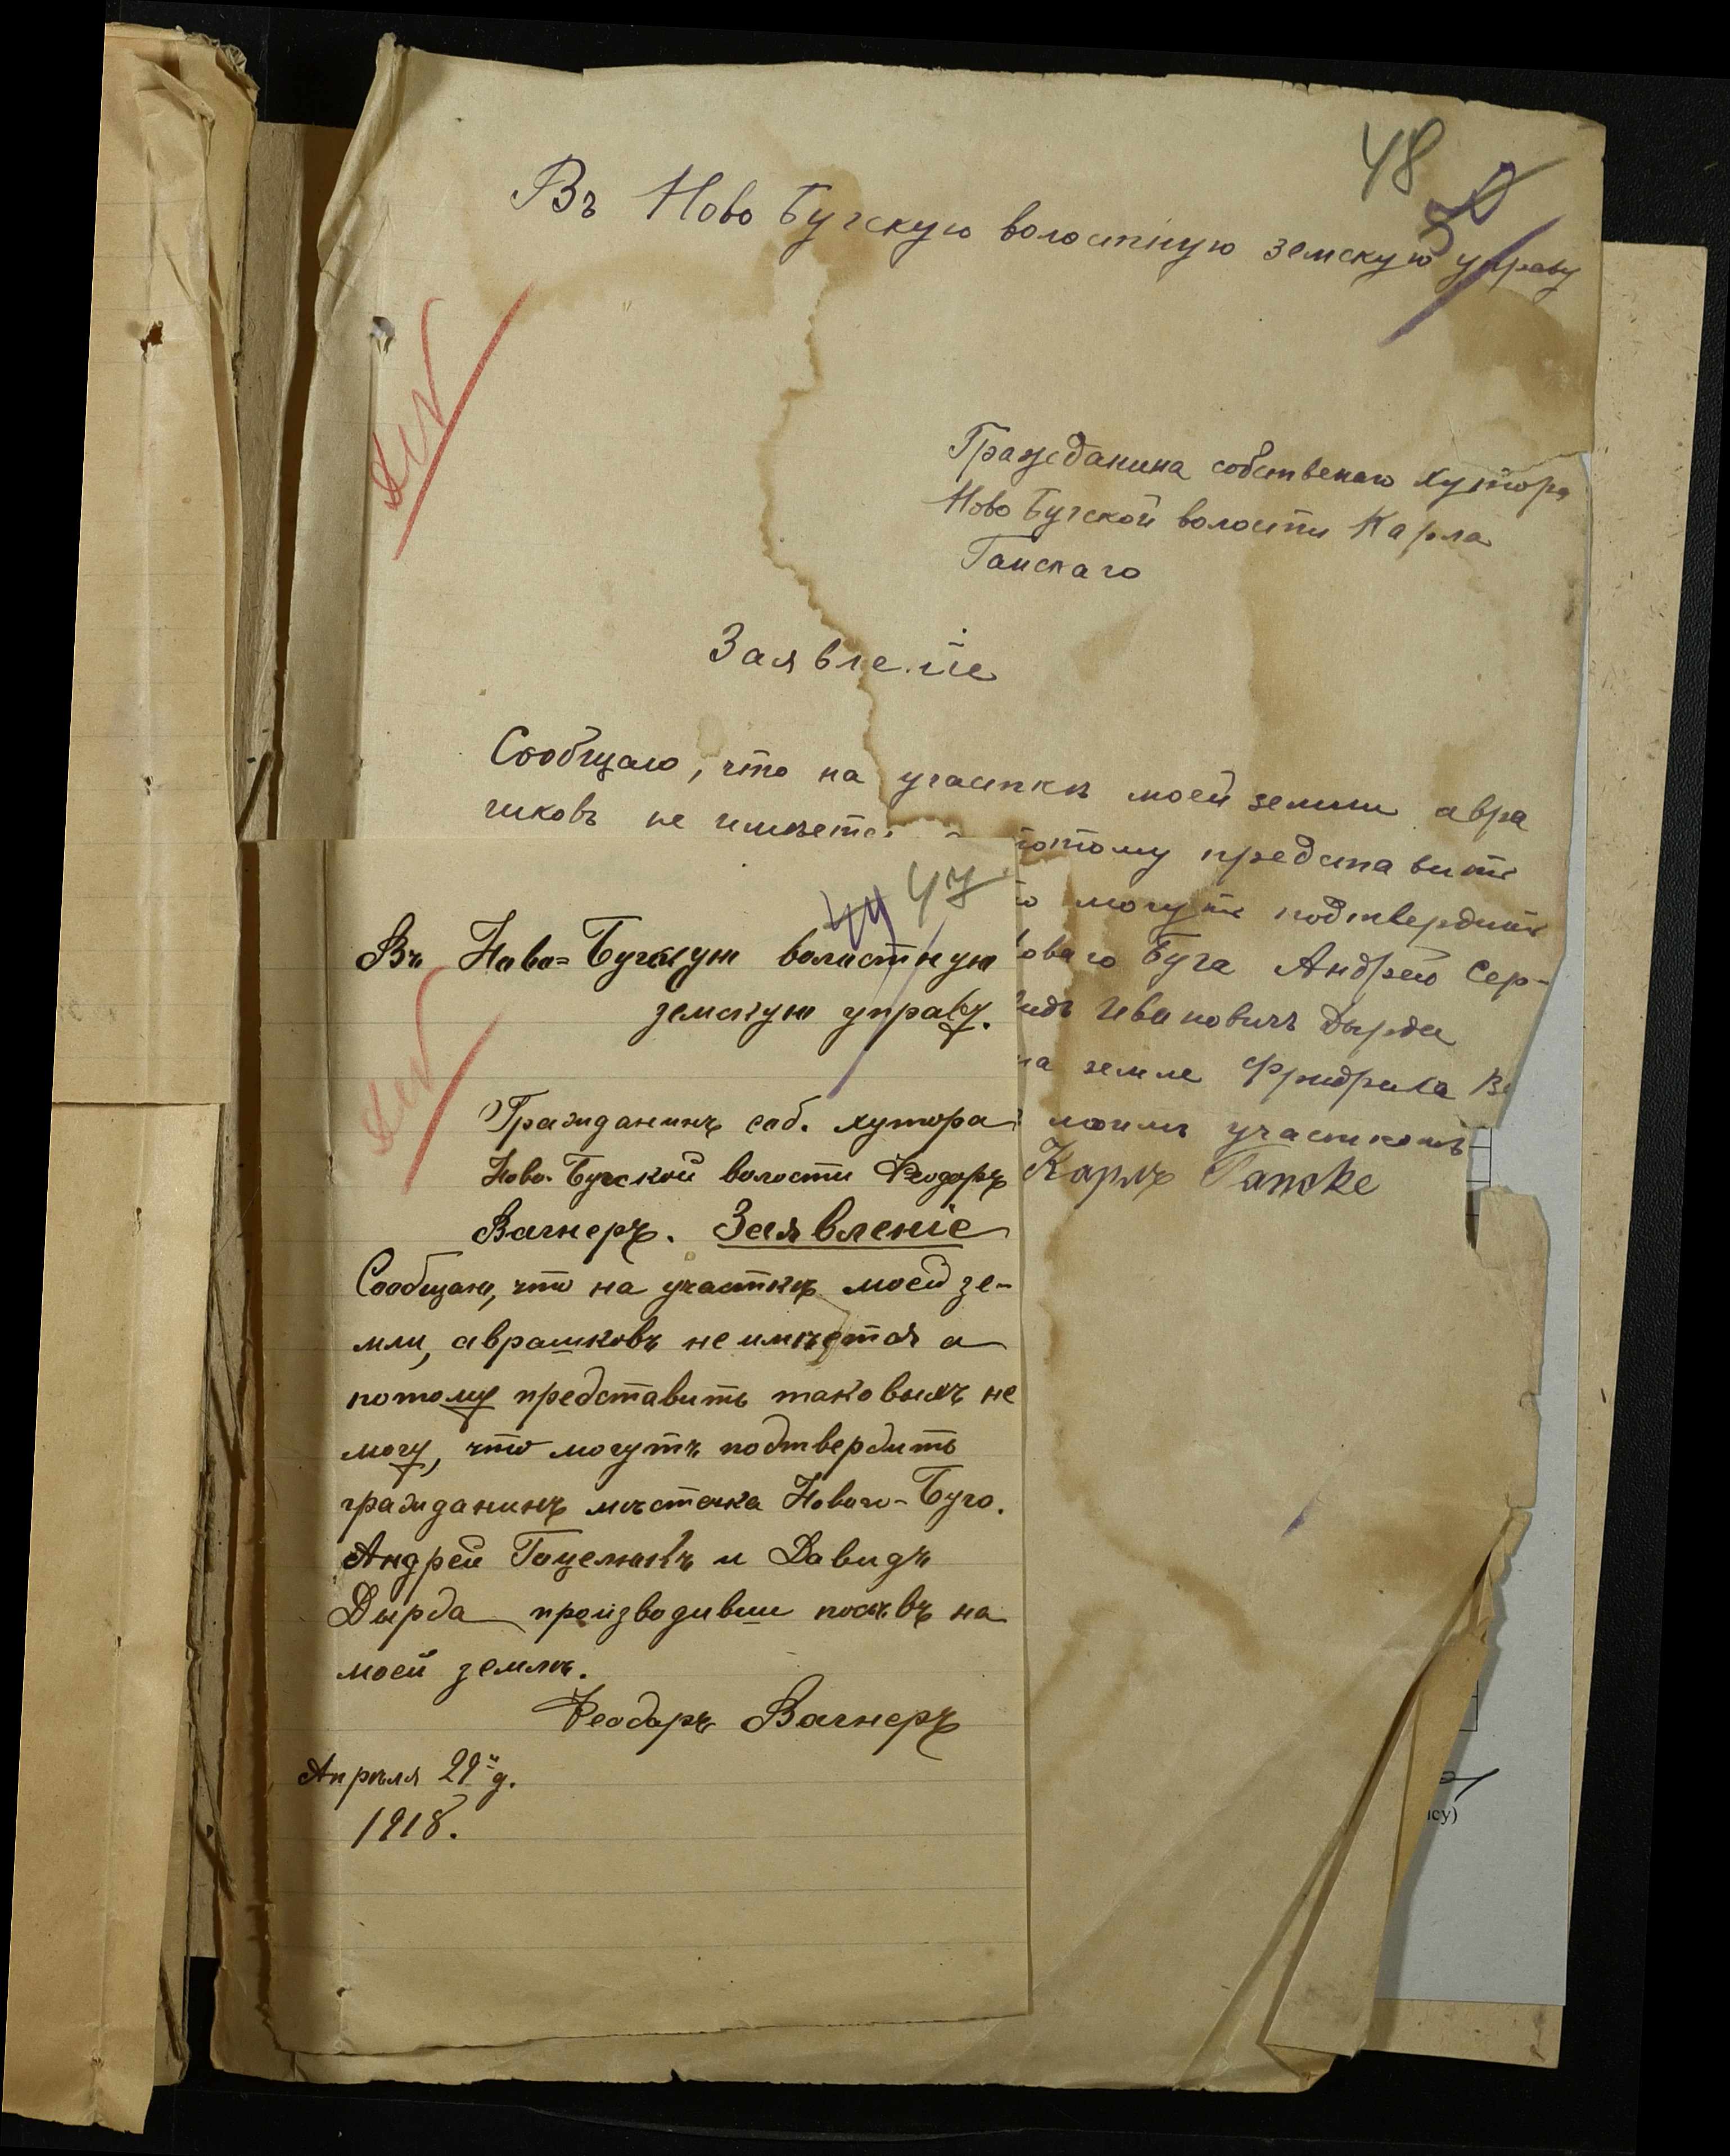 48
Въ Ново Бугскую волостную земскую управу
Гражданина собственаго хутора
Ново Бугской волости Карла
Ганскаго
Заявленіе
Сообщаю, что на участкѣ моей земли авра
шковъ не имѣетс потому представить
могутъ подтвердить
оваго Буга Андрей Сер-
идъ Ивановичъ Дырда
на земле Фридриха В
моимъ участкомъ
Карлъ Ганске
44 47
Въ Ново=Бугскую волостную
земскую управу.
Гражданинъ соб. хутора
Ново-Бугской волости Феодоръ
Вагнеръ. Заявленіе
Сообщаю, что на участкѣ моей зе-
мли, аврашковъ не имѣется а
потому представить таковыхъ не
могу, что могутъ подтвердить
гражданинъ мѣстечка Новаго-Буга.
Андрей Гоцелюкъ и Давидъ
Дырда производивши посѣвъ на
моей землѣ.
Феодоръ Вагнеръ
Апрѣля 29й д.
1918.